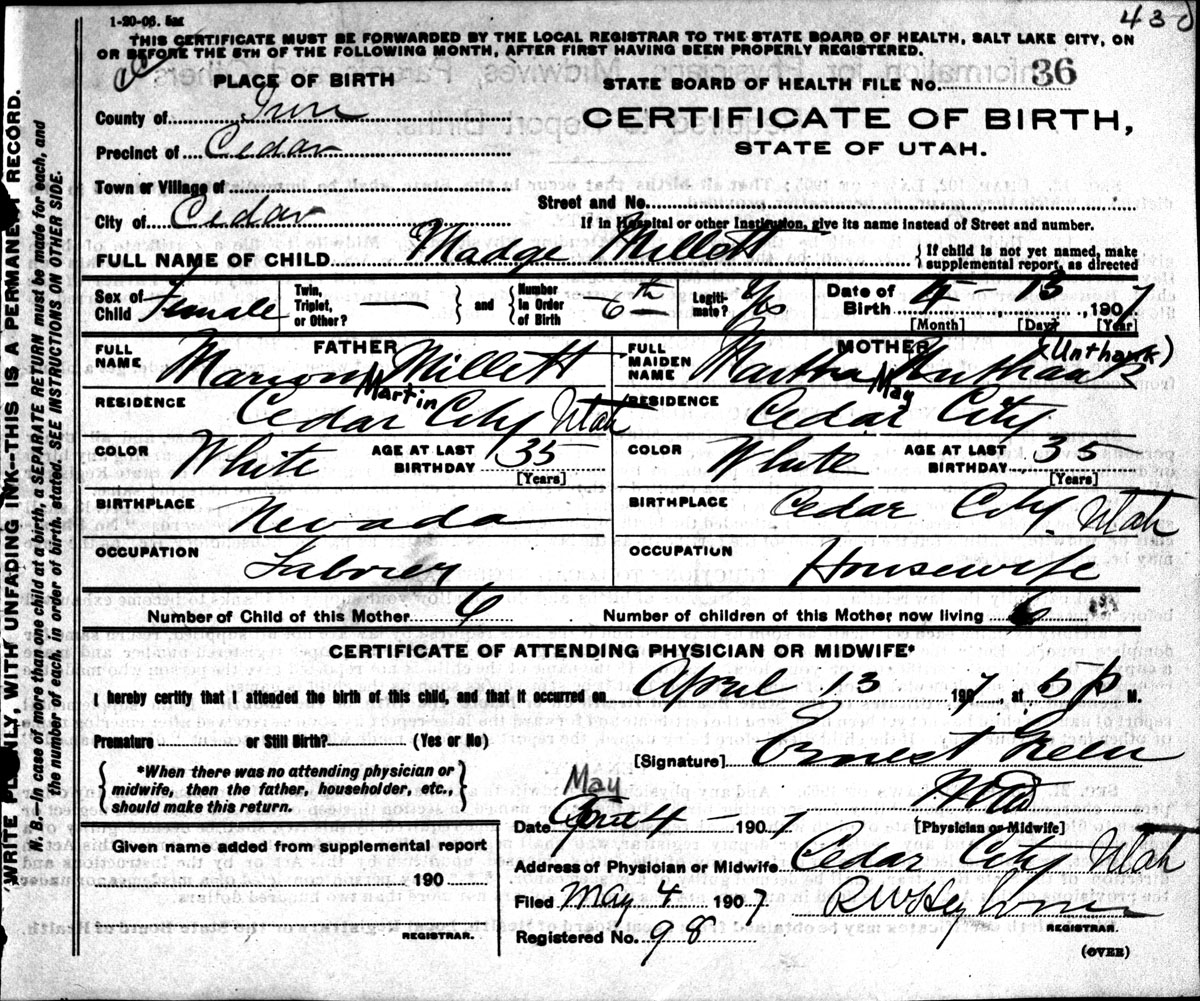 1-20-06. 5m
430
THIS CERTIFICATE MUST BE FORWARDED BY THE LOCAL REGISTRAR TO THE STATE BOARD OF HEALTH, SALT LAKE CITY, ON
OR BEFORE THE 5TH OF THE FOLLOWING MONTH, AFTER FIRST HAVING BEEN PROPERLY REGISTERED.
PLACE OF BIRTH
STATE BOARD OF HEALTH FILE NO. 36
County of Iron
CERTIFICATE OF BIRTH,
Precinct of Cedar
STATE OF UTAH.
Town or Village of
Street and No.
City of Cedar
If in Hospital or other Institution, give its name instead of Street and number.
FULL NAME OF CHILD Madge Millett { If child is not yet named, make supplemental report, as directed
Sex of Child Female
Twin, Triplet, or Other? — } and { Number in Order of Birth 6th
Legitimate? Yes
Date of Birth 4 - 13, 1907
[Month] [Day] [Year]
FATHER
FULL NAME Marion Martin Millett
RESIDENCE Cedar City Utah
COLOR White AGE AT LAST BIRTHDAY 35 [Years]
BIRTHPLACE Nevada
OCCUPATION Laborer
MOTHER
FULL MAIDEN NAME Martha May Unthank (Unthank)
RESIDENCE Cedar City
COLOR White AGE AT LAST BIRTHDAY 35 [Years]
BIRTHPLACE Cedar City Utah
OCCUPATION Housewife
Number of Child of this Mother 6 Number of children of this Mother now living 6
CERTIFICATE OF ATTENDING PHYSICIAN OR MIDWIFE*
I hereby certify that I attended the birth of this child, and that it occurred on April 13 1907, at 5 p M.
Premature or Still Birth? (Yes or No)
[Signature] Ernest Green
{ *When there was no attending physician or midwife, then the father, householder, etc., should make this return. }
[Physician or Midwife]
Date May 4 - 1907
Given name added from supplemental report
190
REGISTRAR.
Address of Physician or Midwife Cedar City Utah
Filed May 4 1907
REGISTRAR.
Registered No. 98
(OVER)
WRITE PLAINLY, WITH UNFADING INK—THIS IS A PERMANENT RECORD.
N. B.—In case of more than one child at a birth, a SEPARATE RETURN must be made for each, and
the number of each, in order of birth, stated. SEE INSTRUCTIONS ON OTHER SIDE.